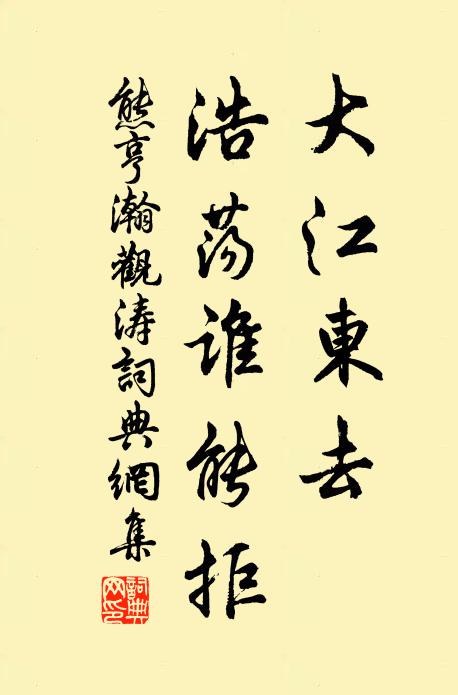 大江東去
浩蕩誰能拒
熊亨瀚觀濤詞典網集
詞典網印